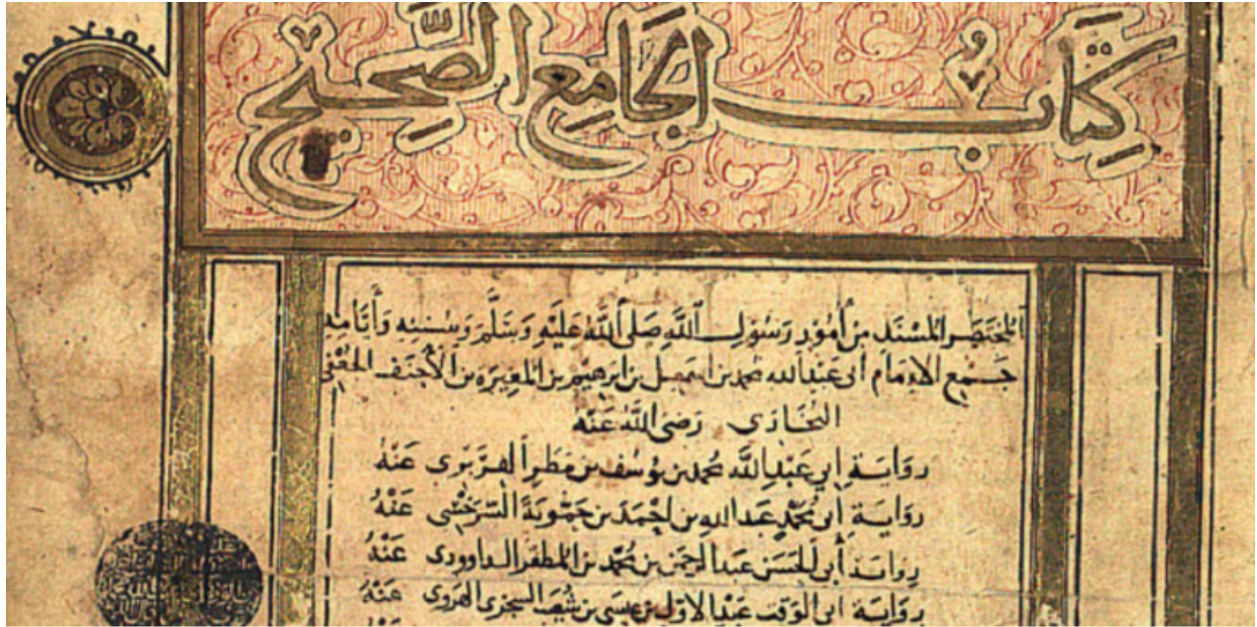 كِتَابُ الجَامِعِ الصَّحِيحِ
المختصر المسند من أمُور رَسُول اللَّه صَلى اللَّهُ عَلَيْهِ وَسَلَّمَ وَسُنَنِهِ وَأَيَّامِهِ
جَمع الإمَام أبى عَبْد الله محمد بن اسمعيل بن ابرهيم بن المغِيرَة بن الأحنف الجُعْفِى
البُخَارى رَضىَ اللَّهُ عَنْه
روَايَة ابى عَبْدِ اللَّه محمد بن يُوسُف بن مَطَر الفِرَبْرى عَنْهُ
روَايَة ابى مُحَمَّدٍ عَبد الله بن احْمَدَ بن حَمُّويَة السَّرَخْسِى عَنْهُ
روايَة أبى الحَسَن عَبد الرحمَن بن محمَّد بن المظفر الداوودى عَنْهُ
روَايَة ابى الوَقت عَبْد الاوّل بن عيسى بن شعَيب السجزى الهَرَوى عَنْهُ